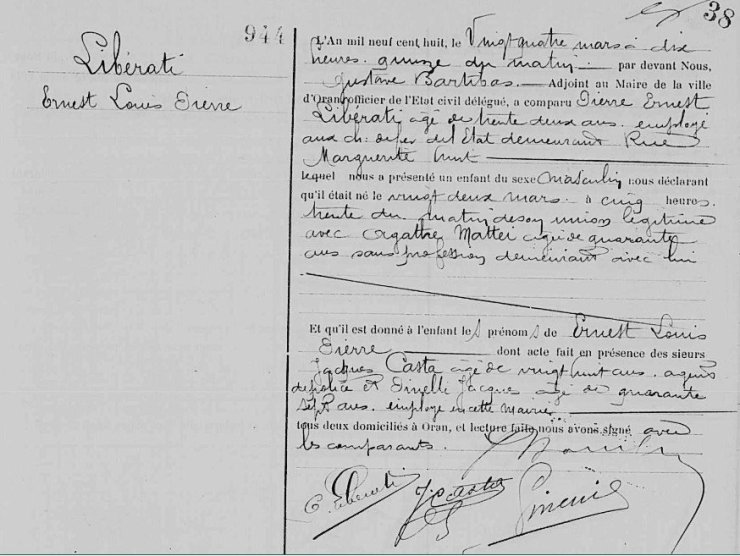 38
944
Libérati
Ernest Louis Pierre
L'An mil neuf cent huit, le Vingt quatre mars à dix
heures quinze du matin par devant Nous,
Gustave Adjoint au Maire de la ville
d'Oran, officier de l'Etat civil délégué, a comparu Pierre Ernest
Libérati agé de trente deux ans. employé
aux ch. de fer de l'Etat demeurant Rue
Marguerite huit
lequel nous a présenté un enfant du sexe masculin nous déclarant
qu'il était né le vingt deux mars à cinq heures
trente du matin de son union légitime
avec Agathe Mattei agée de quarante
ans sans profession demeurant avec lui
Et qu'il est donné à l'enfant les prénoms de Ernest Louis
Pierre dont acte fait en présence des sieurs
Jacques Casta agé de vingt huit ans. agent
de police et Jacques agé de quarante
sept ans. employé en cette mairie
tous deux domiciliés à Oran, et lecture faite nous avons signé avec
les comparants.
Liberati J. Casta